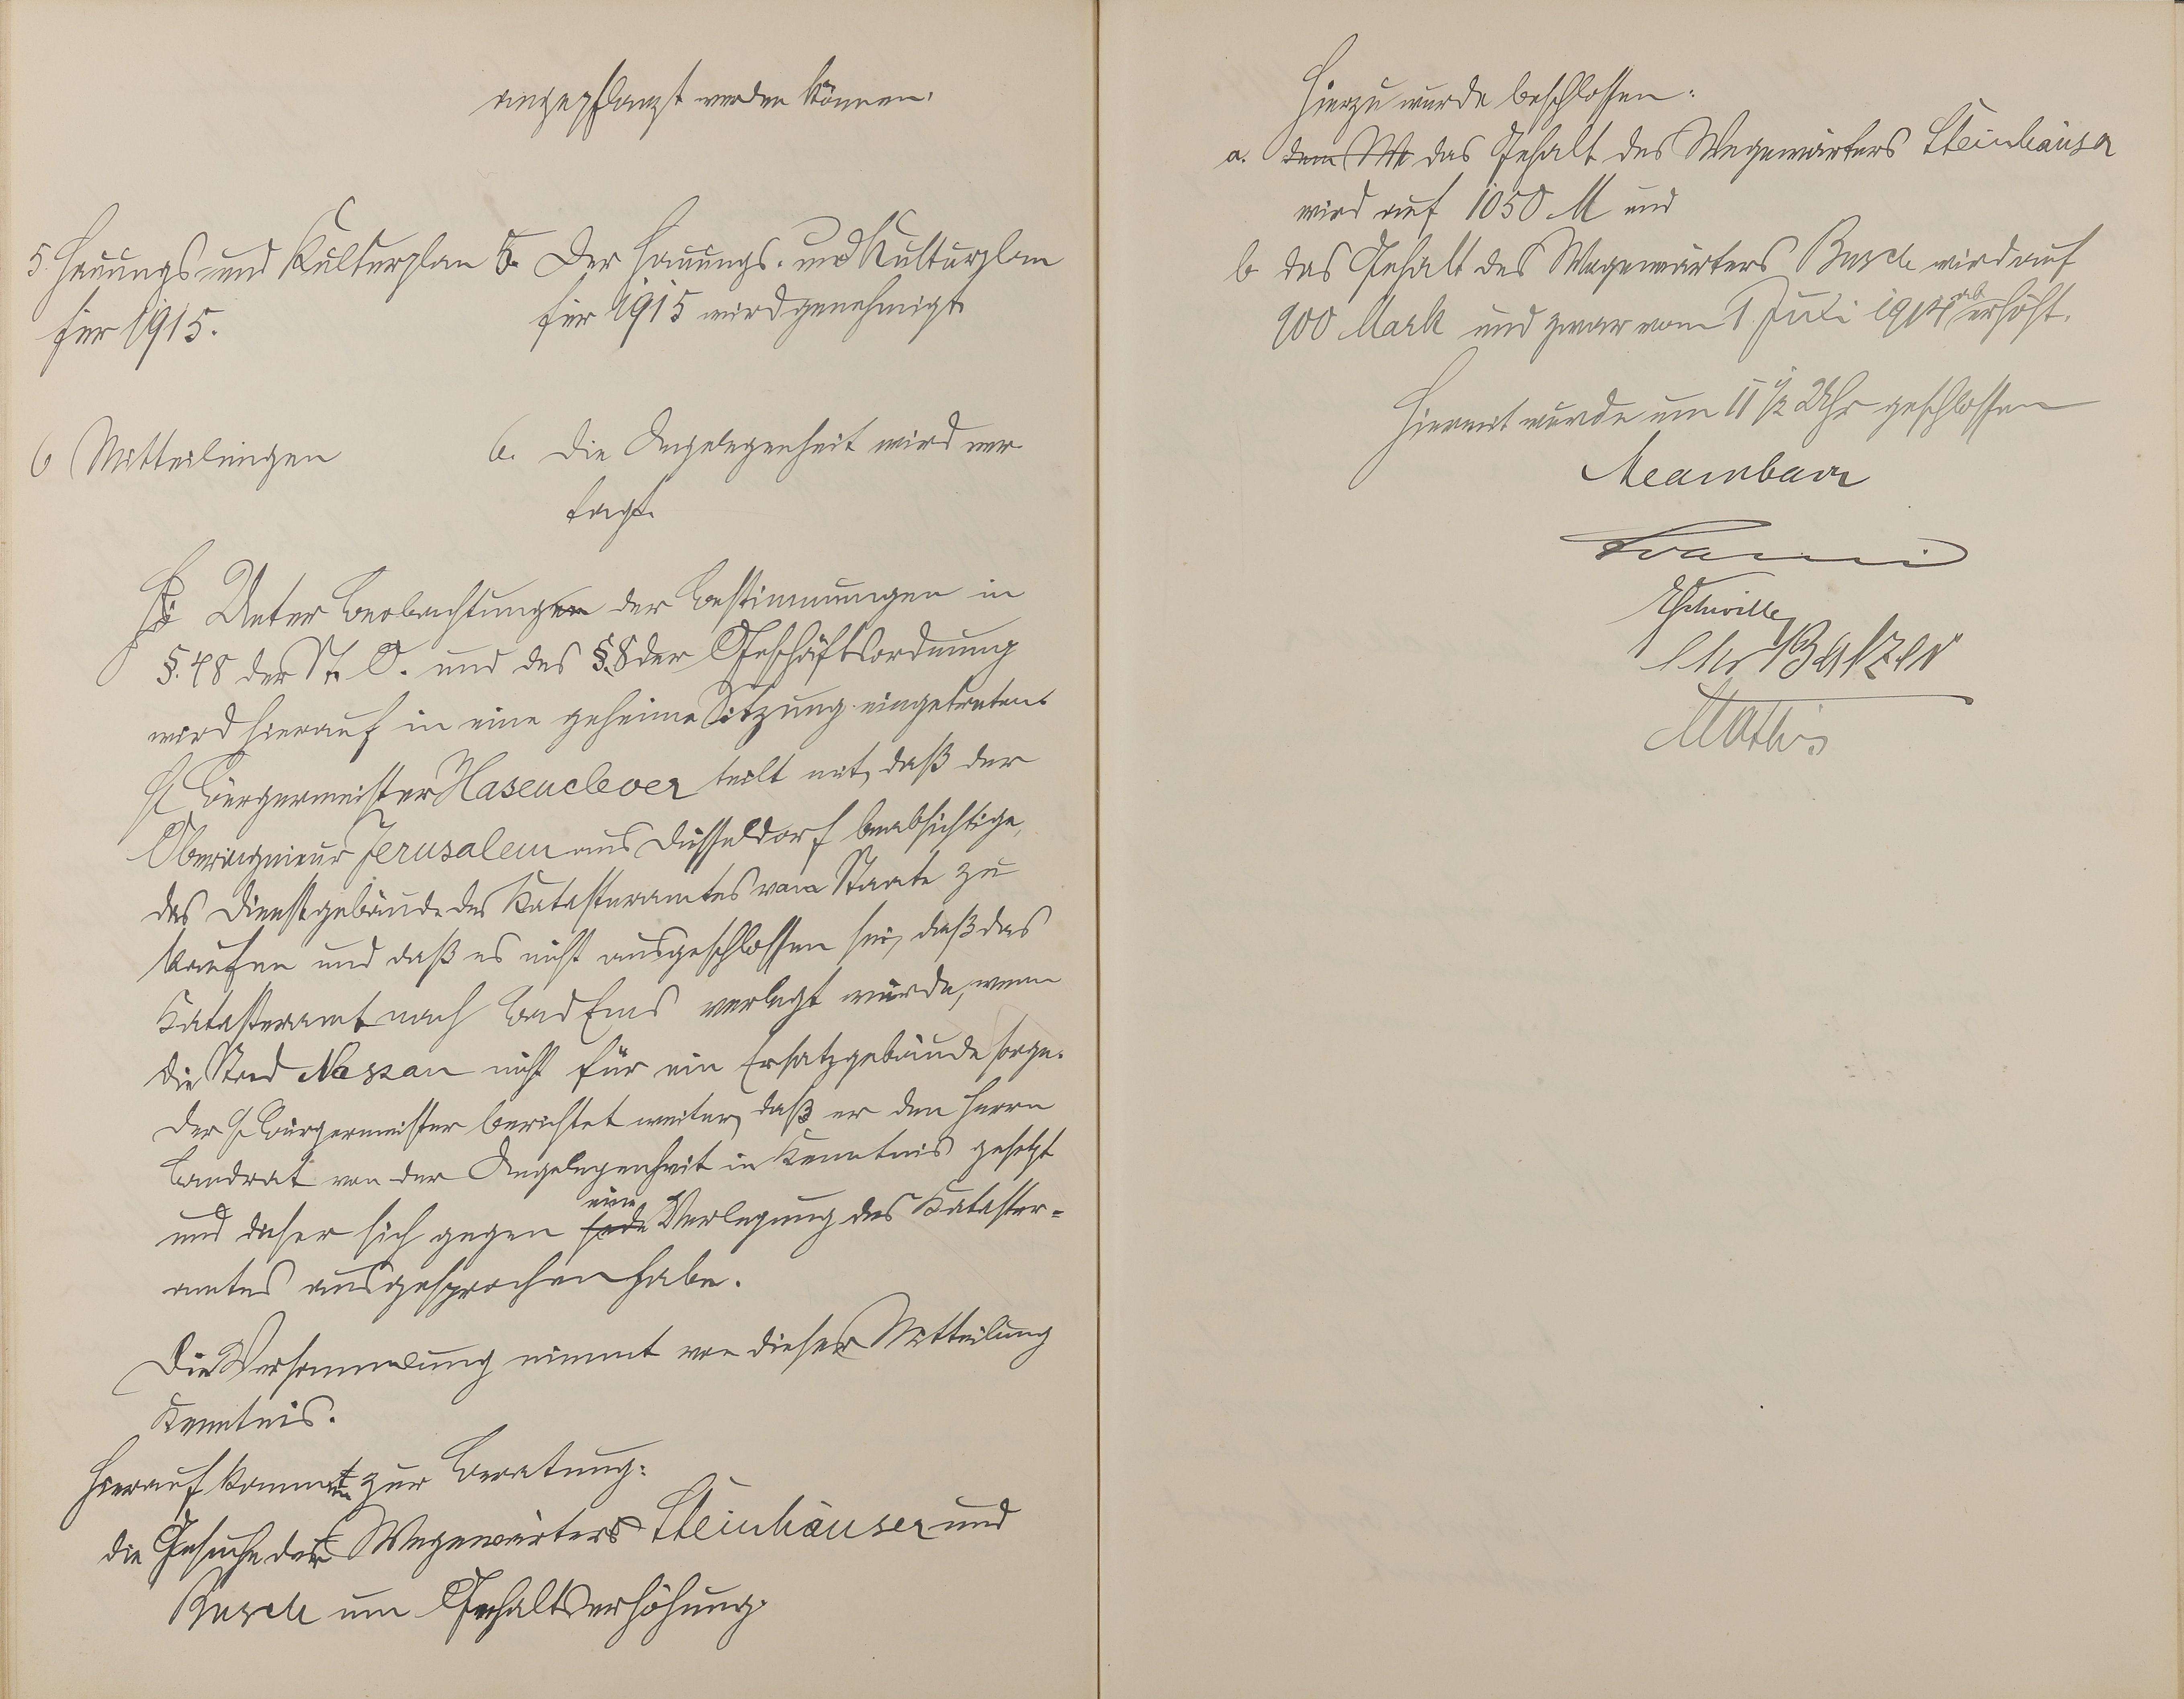 angepflanzt werden können.
5. Hauungs und Kulturplan
für 1915.
5. Der Hauungs- und Kulturplan
für 1915 wird genehmigt
6 Mitteilungen
6. Die Angelegenheit wird ver
tagt.
Unter Beobachtung der Bestimmungen in
§. 48 der St. O. und des §. 8 der Geschäftsordnung
wird hierauf in eine geheime Sitzung eingetreten.
H. Bürgermeister Hasenclever teilt mit, daß der
Oberingenieur Jerusalem aus Düsseldorf beabsichtige,
das Dienstgebäude des Katasteramtes vom Staate zu
kaufen und daß es nicht ausgeschlossen sei, daß das
Katasteramt nach Bad Ems verlegt würde, wenn
die Stad Nassau nicht für ein Ersatzgebäude sorge.
Der H. Bürgermeister berichtet weiter, daß er den Herrn
Landrat von der Angelegenheit in Kenntnis gesetzt
und daß er sich gegen jede eine Verlegung des Kataster-
amtes ausgesprochen habe.
Die Versammlung nimmt von dieser Mitteilung
Kenntnis.
Hierauf kommt zur Beratung:
die Gesuche der Wegewärter Steinhäuser und
Busch um Gehaltserhöhung.
Hierzu wurde beschlossen:
a. dem We das Gehalt des Wegewärters Steinhäuser
wird auf 1050 M und
b das Gehalt des Wegewärters Busch wird auf
900 Mark und zwar vom 1 Juli 1914 ab erhöht.
Hiermit wurde um 11 1/2 Uhr geschlossen
Balzer
Mathis